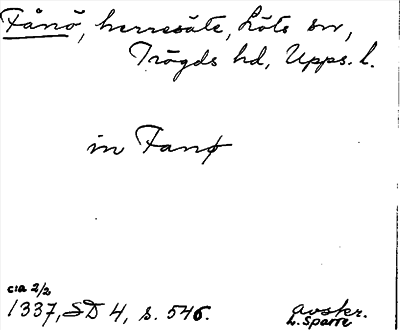 Fånö, herresäte, Löts sn,
Trögds hd, Upps. l.
in Fanø
cia 2/2
1337, SD 4, s. 546.
avskr.
L. Sparre